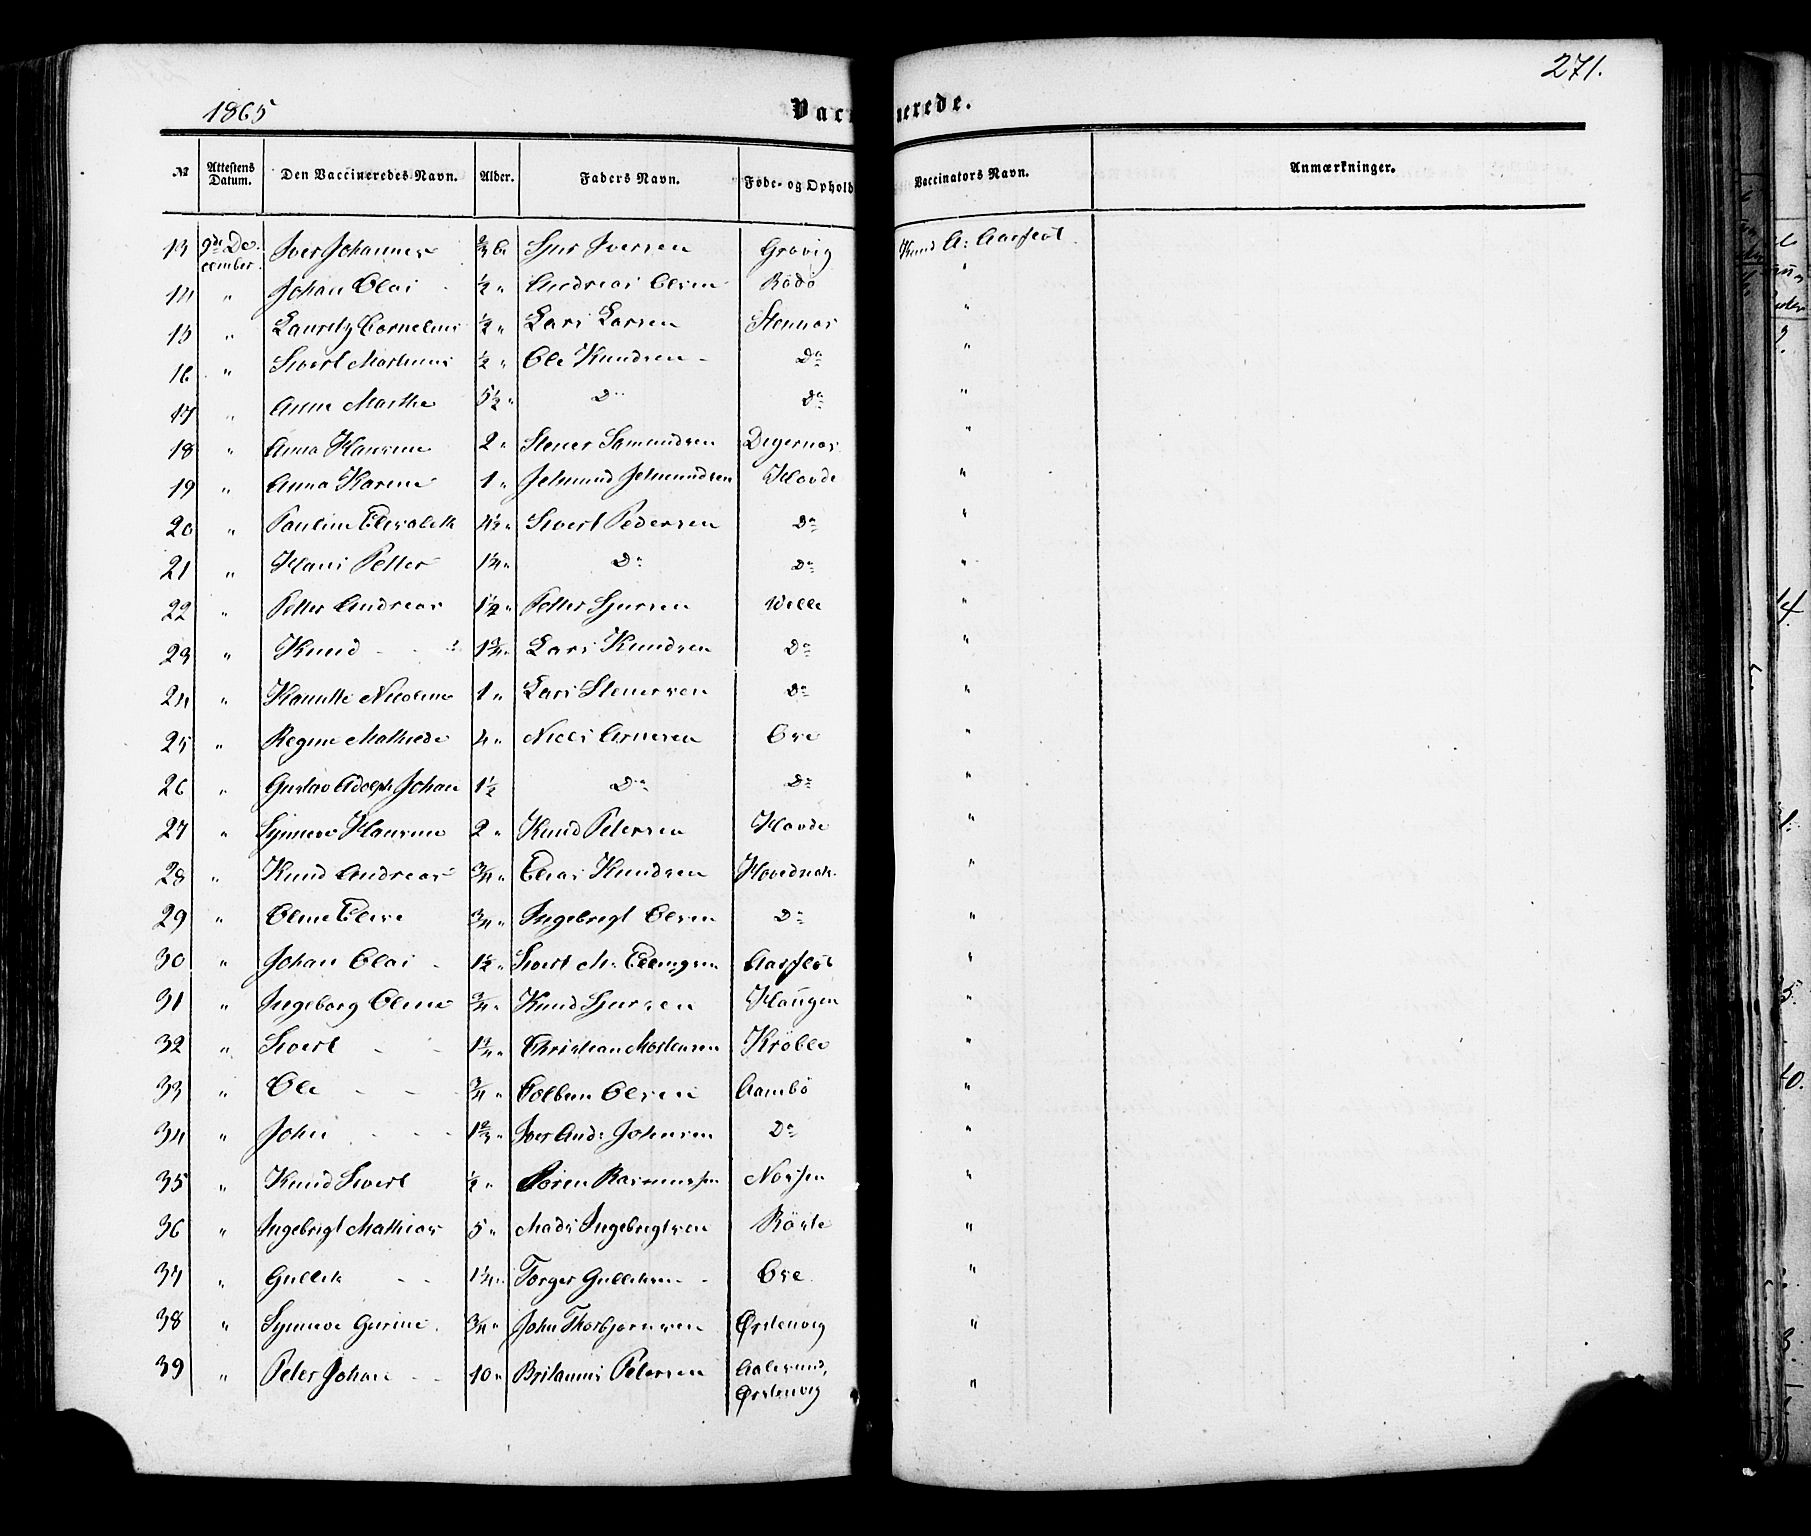 271.
1865
Vaccinerede.
№ Attestens Datum. Den Vaccineredes Navn. Alder. Faders Navn. Føde- og Ophold Vaccinators Navn. Anmærkninger.
13 9de De- cember. Iver Johannes Sjur Iversen Grøvig Knud A: Aarflot
14 " Johan Olai - ½ " Andreas Olsen Rödö "
15 " Lauritz Cornelius ½ " Lars Larsen Stennæs "
16 " Sivert Martinus ½ " Ole Knudsen - Do "
17 " Anne Marthe 5½ " Do Do "
18 " Anna Hansine 2 " Stener Samundsen Degernæs "
19 " Anna Karine 1 " Jetmund Jetmundsen Hovde "
20 " Pauline Elisabeth Sivert Pedersen Do "
21 " Hans Petter 1¼ " Do Do "
22 " Petter Andreas 1½ " Petter Sjursen Velle "
23 " Knud 1¾ " Lars Knudsen Do "
24 " Hanikke Nicoline 1 " Lars Stenersen Do "
25 " Regine Mathilde 4 " Niels Arnesen Ose "
26 " Gustav Adolph Johan 1½ Do Do "
27 " Synneve Hansine 2 " Knud Petersen Hovde "
28 " Knud Andreas ¾ " Elias Knudsen Hovdenak "
29 " Oline Elise ¾ " Ingebrigt Olsen Do "
30 " Johan Olai - 1½ " Sivert M. Ellingsen Aarflot "
31 " Ingeborg Oline ¾ " Knud Sjursen Haugen "
32 " Sivert - - 1¼ " Christian Mortensen Kröble "
33 " Ole - - ¾ " Colbein Olsen Aambö "
34 " John - - - 1⅔ " Iver And: Johnsen Do "
35 " Knud Sivert ½ " Sören Rasmussen "
36 " Ingebrigt Mathias 5 " Mads Ingebrigtsen Röste "
37 " Gullik - - 1¼ " Torger Gulliksen - - Ose "
38 " Synneve Gurine ¾ " John Thorbjørnsen Ørstenvig "
39 " Peter Johan - - 10 " Britanus Petersen Aalesund, Ørstenvig "